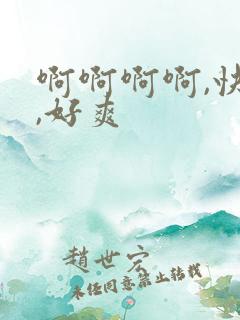 啊啊啊啊,快
,好爽
趙世宏
未任同意禁止转载